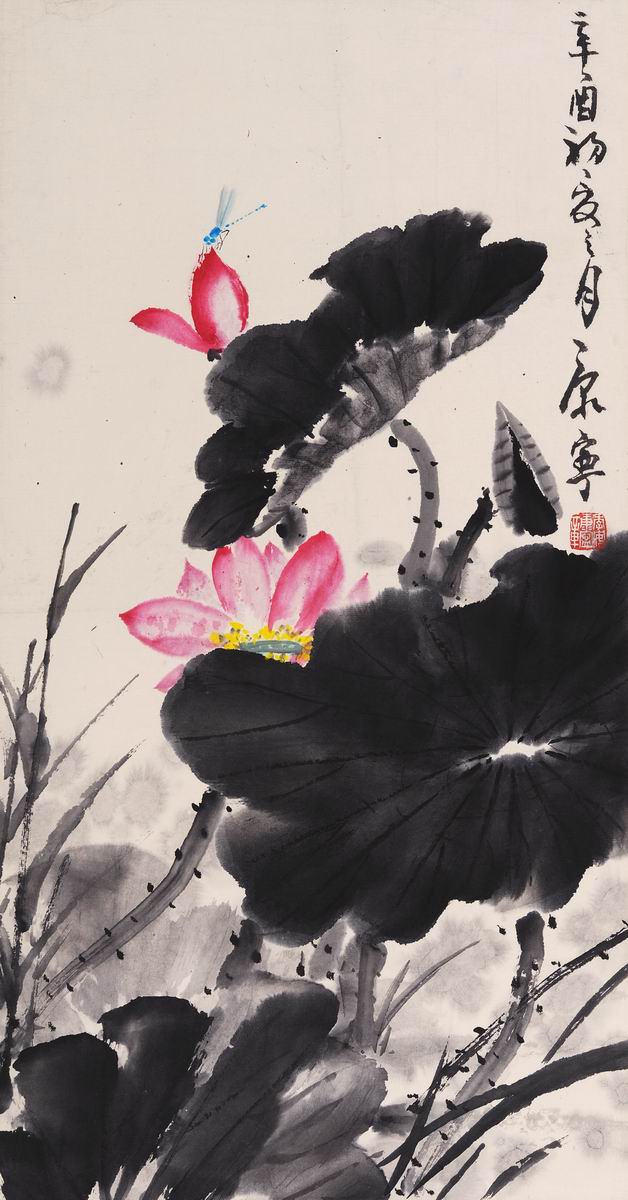 辛酉初夏之月康宁